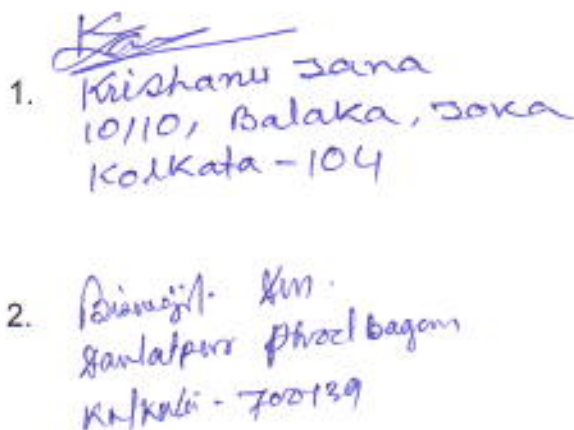 1. Krishanu Jana
10/10, Balaka, Joka
Kolkata - 104
2. Biswajit
Daulatpur
Kolkata - 700139